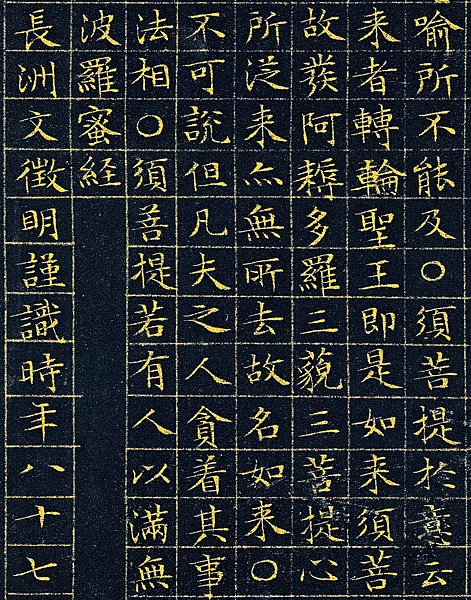 喻所不能及○須菩提於意云
来者轉輪聖王即是如来須菩
故發阿耨多羅三藐三菩提心
所從来亦無所去故名如来○
不可說但凡夫之人貪着其事
法相○須菩提若有人以滿無
波羅蜜経
長洲文徵明謹識時年八十七